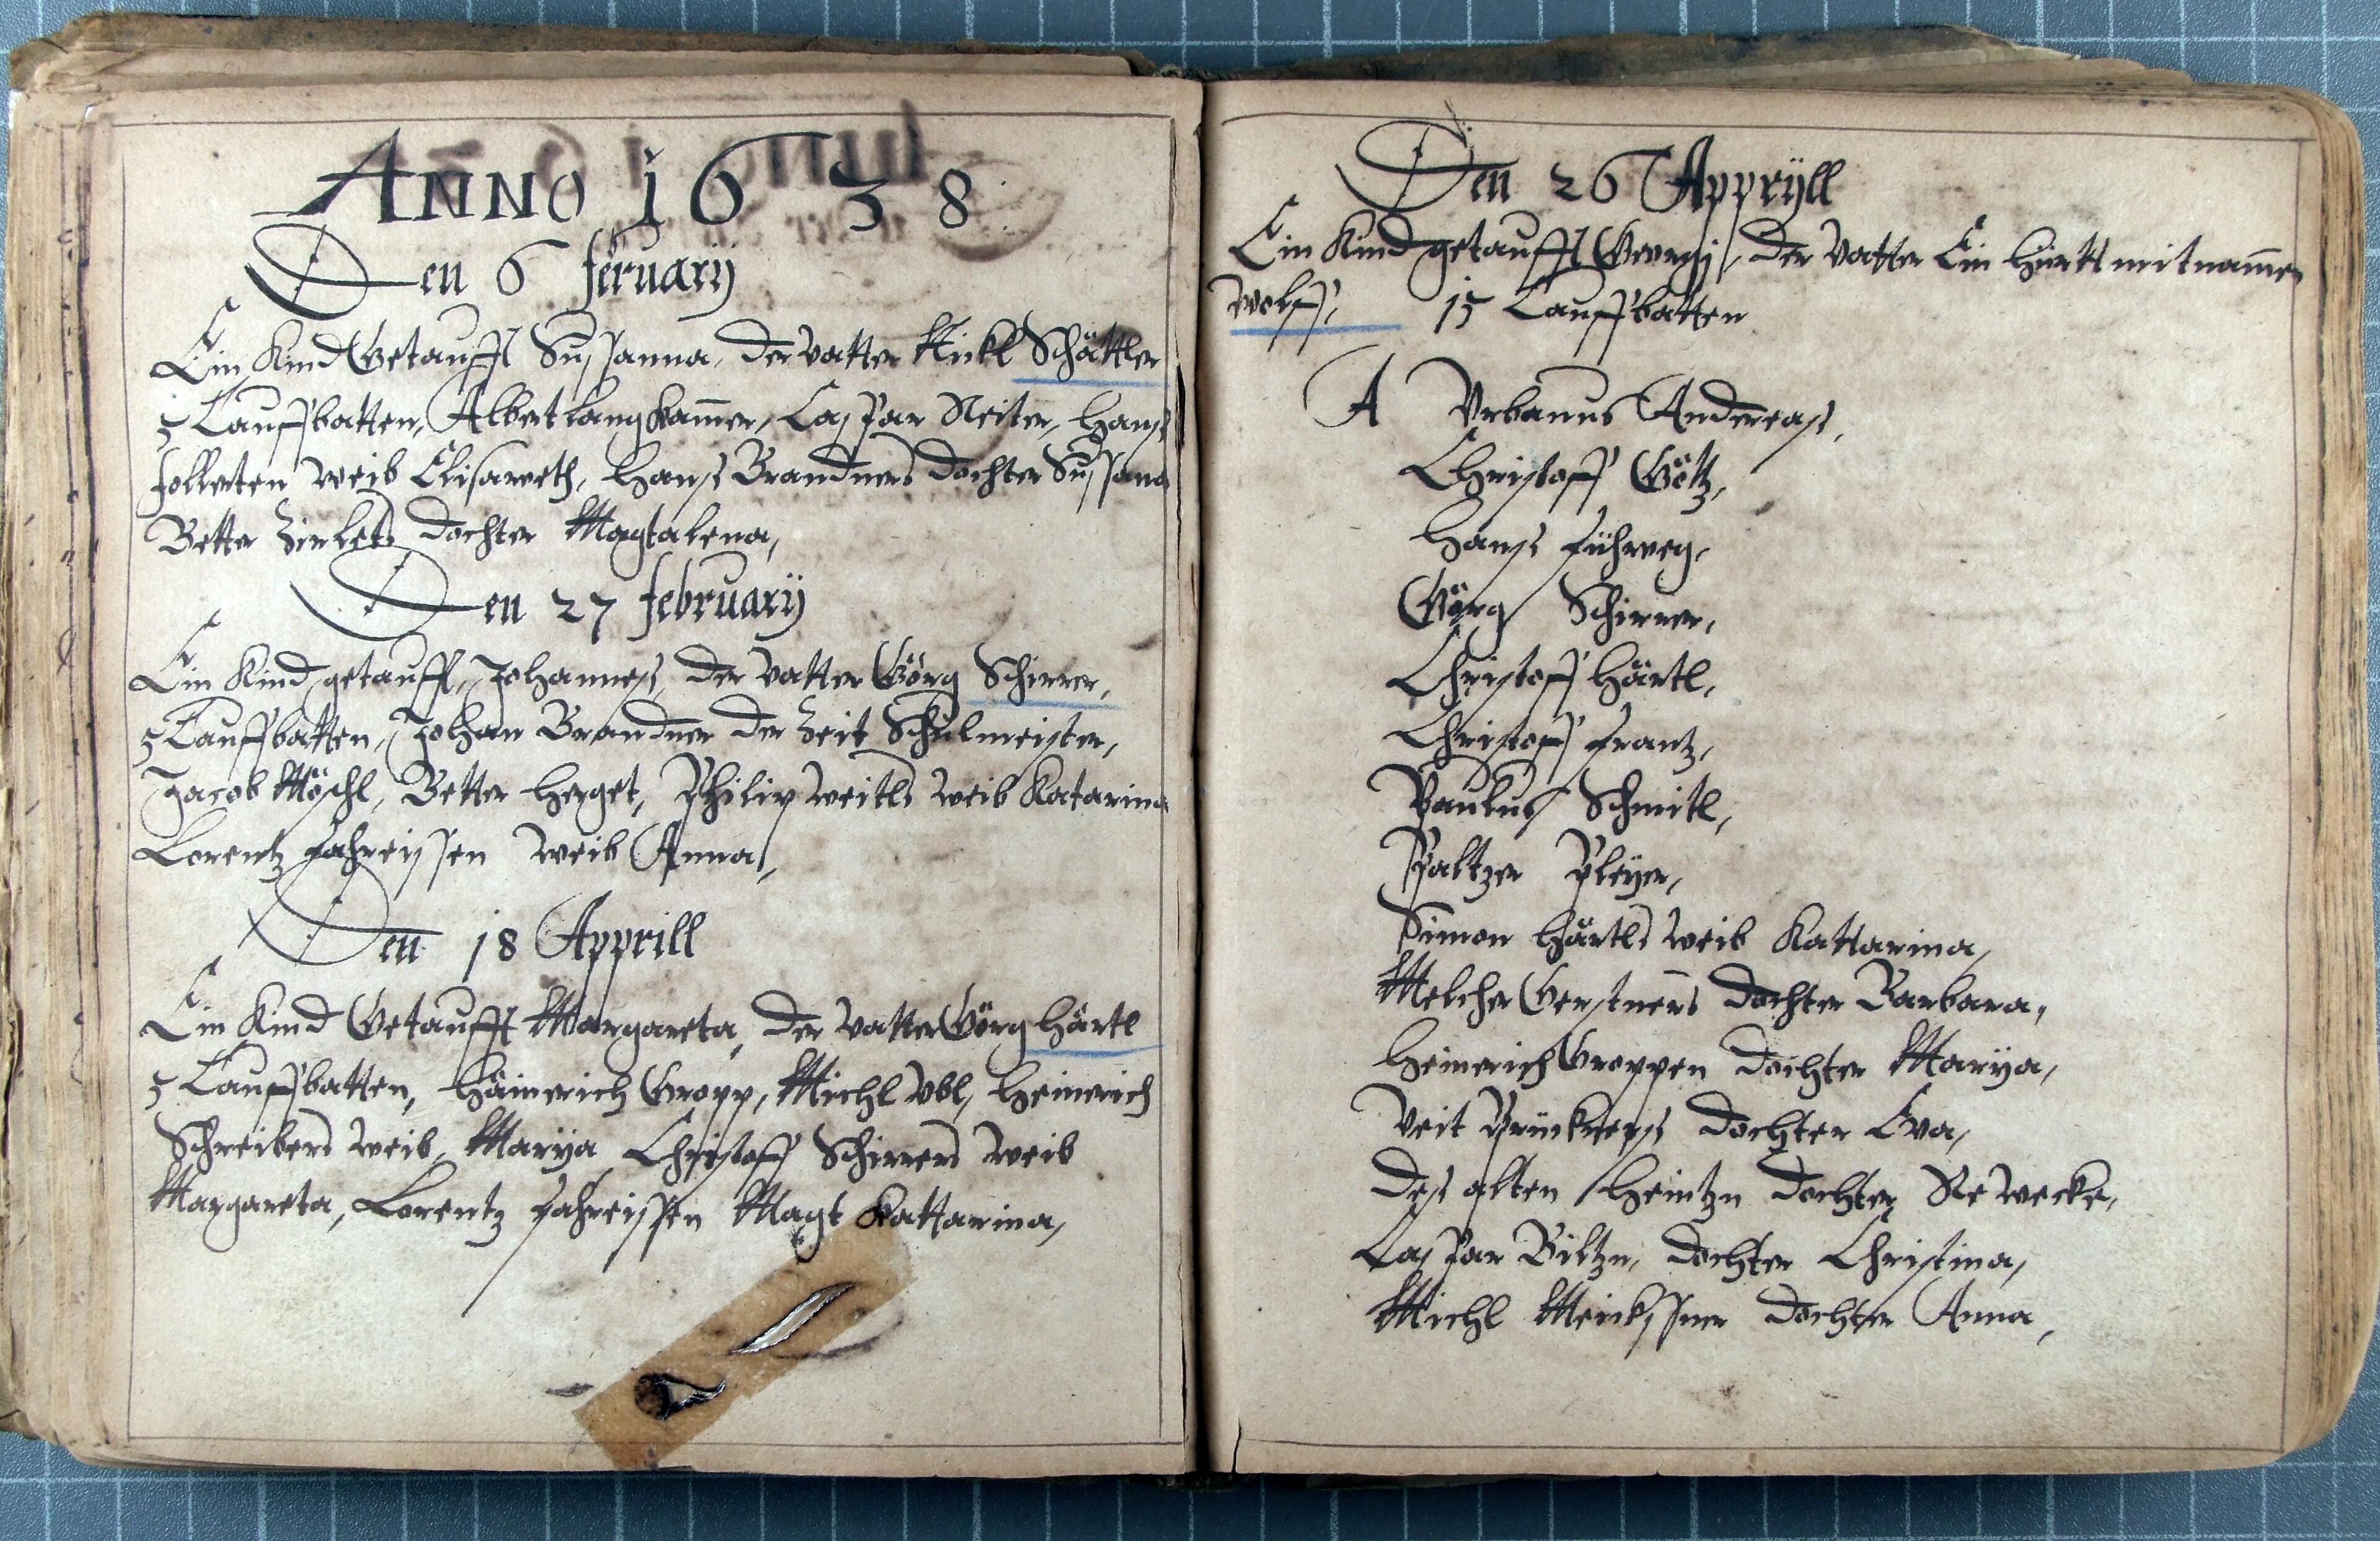 ANNO 1638
Den 6 feruarÿ
Ein Kind Getaufft Sussanna, der Vatter Nickl Schättler
5 Tauffbatten, Albert langkamer, Casspar Reiter, Hanss
follerten weib Elisaweth, Hanss Brandners dochter Sussana
Better Zirkels dochter Magtalena,
Den 27 februarÿ
Ein Kind getaufft, Johanness, der Vatter Görg Schirrer,
5 Tauffbatten, Johan Brandner der Zeit Schulmeister,
Jacob Möschl, Better Herget, Philip Weitls weib Katarina
Lorentz fahreissen weib Anna,
Den 18 Apprill
Ein Kind Getaufft Margareta, der Vatter Görg Härtl
5 Tauffbatten, Häinerich Gropp, Michl Vbl, Heinerich
Schreibers weib, Marÿa, Christoff Schirrers weib
Margareta, Lorentz fahreissen Magt Kattarina,
Den 26 Apprÿll
Ein Kind getaufft Georgi, der Vatter Ein Hürtt mit namen
Wolff, 15 Tauffbatten
A Vrbanus Andereass,
Christoff Götz,
Hanss führweg,
Görg Schirrer,
Christoff Härtl,
Christoff frantz,
Paulus Schmitl,
Paltzer Pleÿer,
Simon Härtls weib Kattarina,
Melcher Gerstners dochter Barbara,
Heinerich Groppen dochter Marÿa,
Veit Prückners dochter Eva,
Dess alten Heintzn dochter Re wecka,
Casspar Biltzn, dochter Christina,
Michl Meickssner dochter Anna,